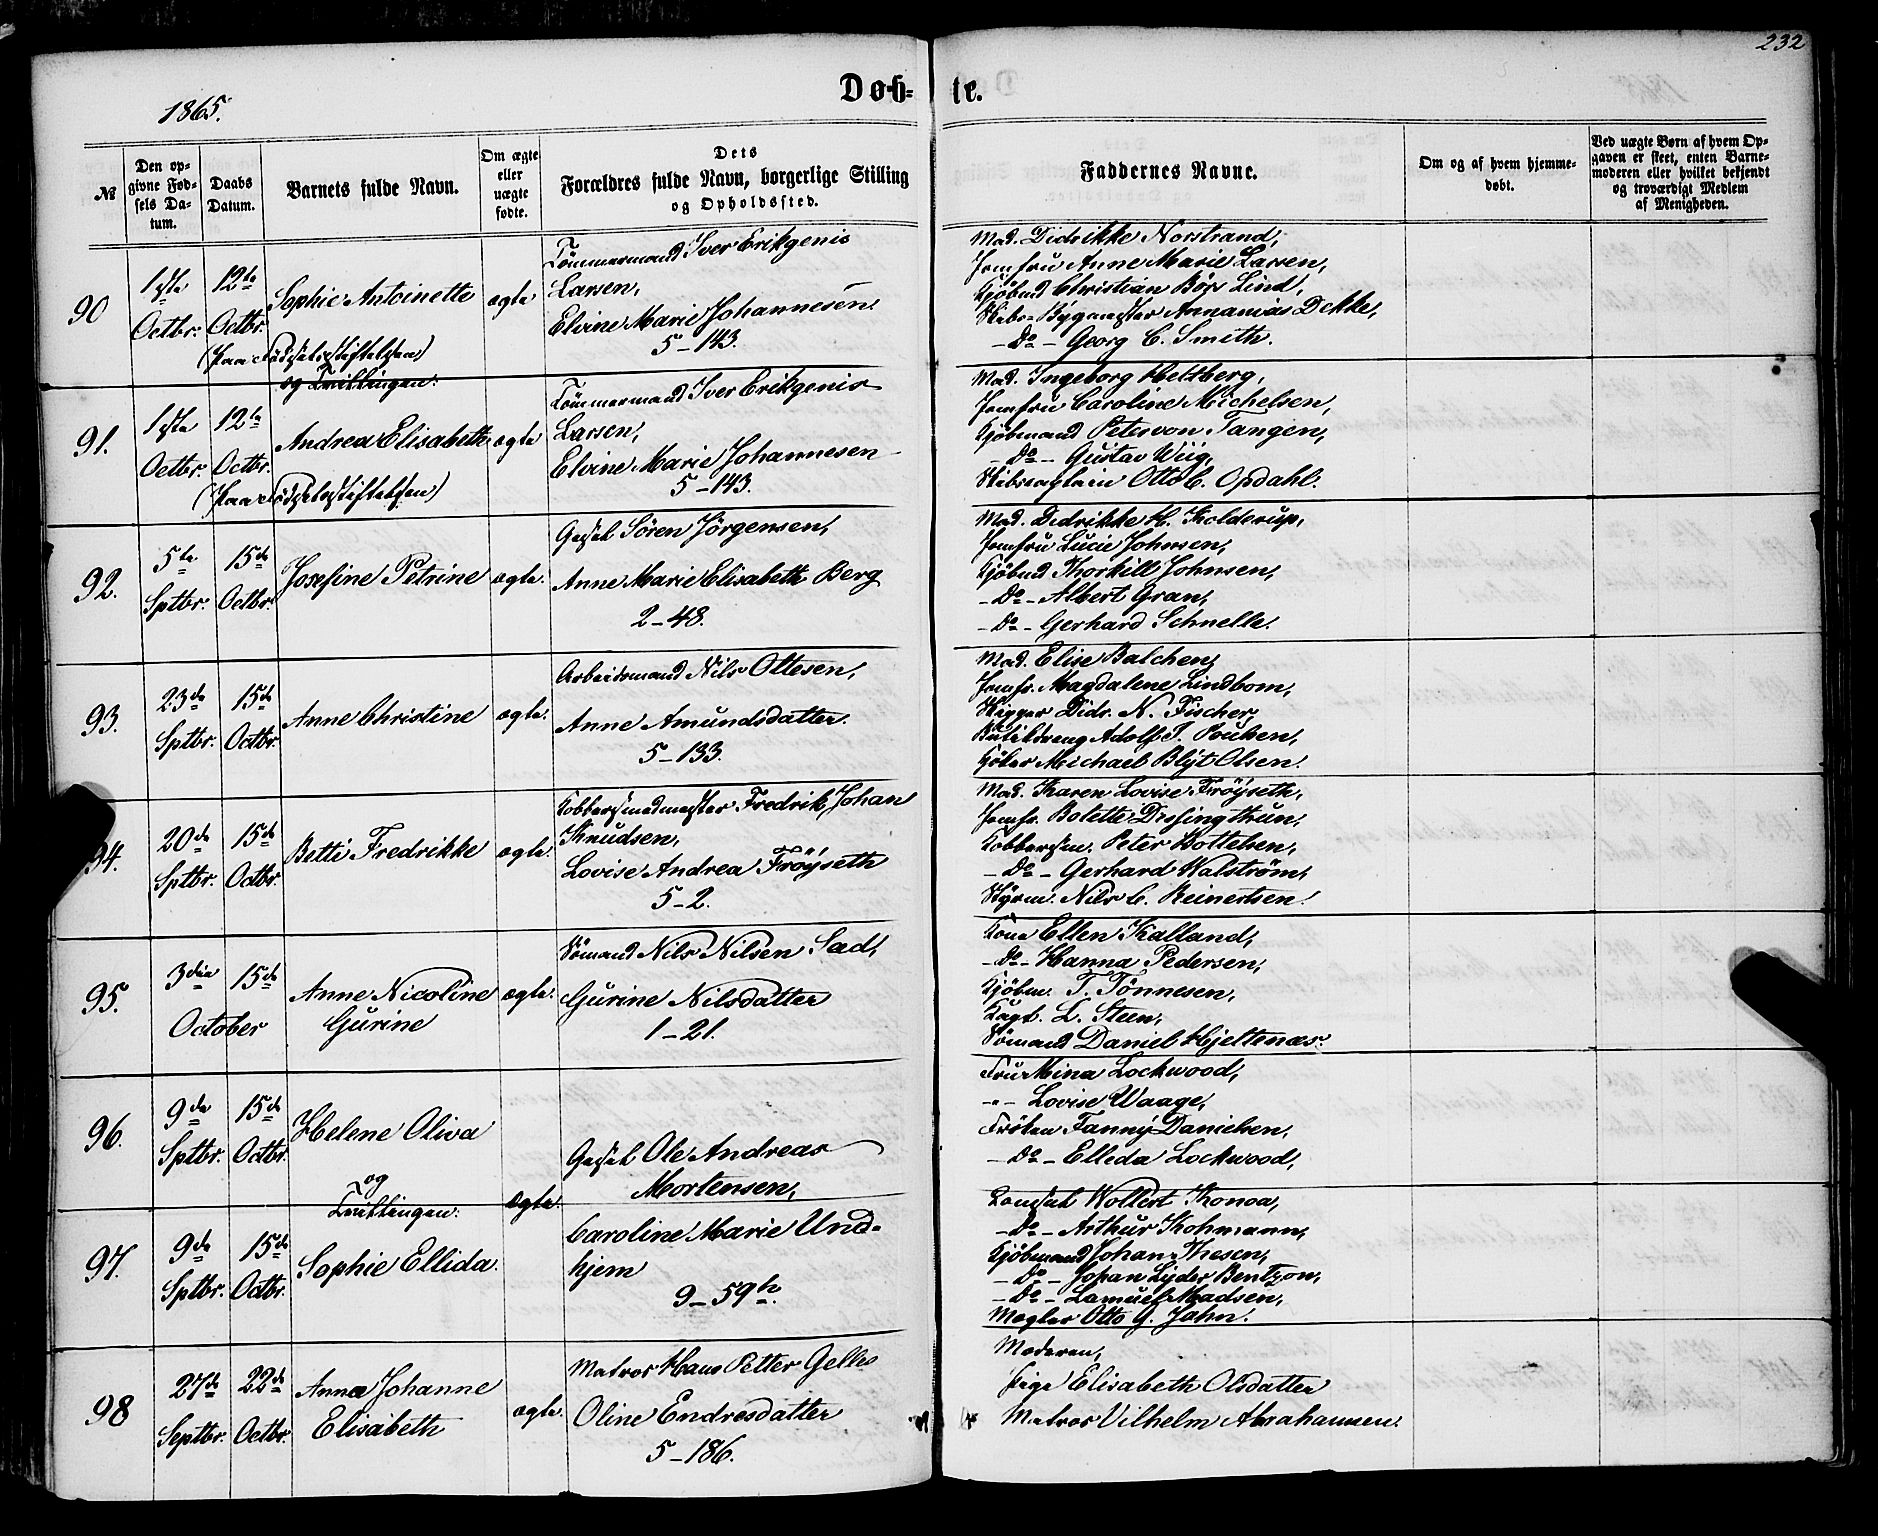 232
1865.
Døb-
te.
№
Den op-
givne Fød-
sels Da-
tum.
Daabs
Datum.
Barnets fulde Navn.
Om ægte
eller
uægte
fødte.
Dets
Forældres fulde Navn, borgerlige Stilling
og Opholdssted.
Faddernes Navne.
Om og af hvem hjemme-
døbt.
Ved uægte Børn af hvem Op-
gaven er skeet, enten Barne-
moderen eller hvilket bekjendt
og troværdigt Medlem
af Menigheden.
90
1ste
Octbr.
12te
Octbr.
Sophie Antoinette
(paa Fødselsstiftelsen)
og Tvillingen:
ægte
Tømmermand Iver Erikgenis
Larsen,
Elvine Marie Johannesen.
5-143.
Mad. Didrikke Norstrand,
Jomfru Anne Marie Larsen,
Kjøbmd Christian Börs Lind,
Skibs-Bygmester Annanias Dekke,
- Do - Georg C. Smith.
91.
1ste
Octbr.
12te
Octbr.
Andrea Elisabeth
(paa Fødselsstiftelsen)
ægte
Tømmermand Iver Erikgenis
Larsen,
Elvine Marie Johannesen
5-143.
Mad. Ingeborg Heltberg,
Jomfru Caroline Michelsen,
Kjöbmand Peter von Tangen,
- Do - Gustav Wiig,
Skibscaptain Otto C. Opdahl.
92.
5te
Sptbr.
15de
Octbr.
Josefine Petrine
ægte.
Gesel Sören Jörgensen,
Anne Marie Elisabeth Berg
2-48.
Mad. Didrikke H. Kolderup,
Jomfru Lucie Johnsen,
Kjöbmd Thorkill Johnsen,
- Do - Albert Gran,
- Do - Gerhard Schnelle.
93.
23de
Sptbr.
15de
Octbr.
Anne Christine
ægte.
Arbeidsmand Nils Ottesen,
Anne Amundsdatter.
5-133.
Mad. Elise Balchen,
Jomfr. Magdalene Lindbom,
Skipper Didr. N. Fischer,
Adolf
Michael Blyt Olsen.
94.
20de
Sptbr.
15de
Octbr.
Betti Fredrikke
ægte.
Kobbersmedmester Fredrik Johan
Knudsen,
Lovise Andrea Fröyseth
5-2.
Mad. Karen Lovise Fröyseth,
Jomfr. Bolette Dissingthun,
Kobbersm. Peter Bottelsen,
- Do - Gerhard Walström,
Styrm. Nils C. Reinertsen.
95.
3die
October
15de
Anne Nicoline
Gurine
ægte.
Sömand Nils Nilsen Sad,
Gurine Nilsdatter
1-21.
Kone Ellen Kalland,
- Do - Hanna Pedersen,
Kjöbm. T. Tönnesen,
Capt. L. Steen,
Sömand Daniel Hjeltenæs.
96.
9de
Sptbr.
15de
Octbr.
Helene Oliva
og
Tvillingen:
Ægte.
Gesel Ole Andreas
Mortensen,
Fru Mina Lockwood,
-"- Lovise Waage,
Fröken Fanny Danielsen,
- Do - Elleda Lockwood,
97.
9de
Sptbr.
15de
Octbr.
Sophie Ellida.
Caroline Marie Und-
hjem
9-59b.
Consul Wollert Konow,
- Do - Arthur Kohmann,
Kjöbmand Johan Thesen,
- Do - Johan Lyder Bentzon,
- Do - Samuel Madsen,
Mægler Otto G. Jahn.
98
27de
Septbr.
22de
Octbr.
Anna Johanne
Elisabeth
ægte.
Matros Hans Petter Gelles
Oline Endresdatter
5-186.
Moderen,
Pige Elisabeth Olsdatter
Matros Vilhelm Abrahamsen.